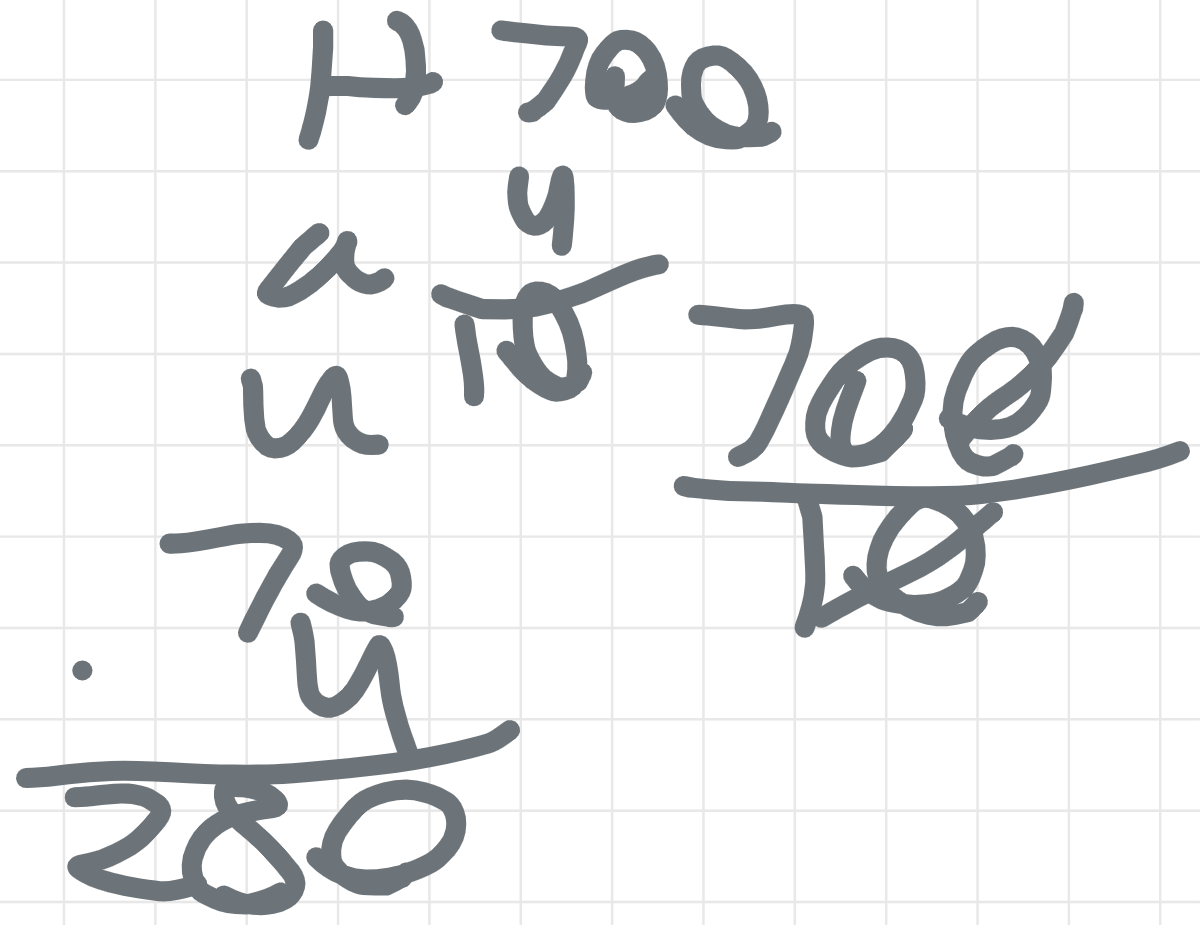 H 700
a 4
10
u
700
10
70
. 4
280